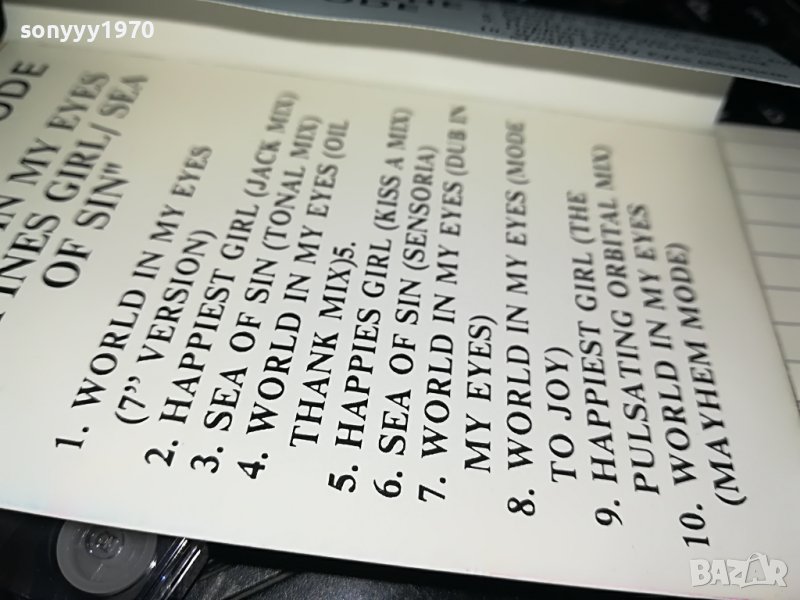 sonyyy1970
ODE
IN MY EYES
INES GIRL/ SEA
OF SIN"
1. WORLD IN MY EYES
(7” VERSION)
2. HAPPIEST GIRL (JACK MIX)
3. SEA OF SIN (TONAL MIX)
4. WORLD IN MY EYES (OIL
THANK MIX)5.
5. HAPPIES GIRL (KISS A MIX)
6. SEA OF SIN (SENSORIA)
7. WORLD IN MY EYES (DUB IN
MY EYES)
8. WORLD IN MY EYES (MODE
TO JOY)
9. HAPPIEST GIRL (THE
PULSATING ORBITAL MIX)
10. WORLD IN MY EYES
(MAYHEM MODE)
BAZAR